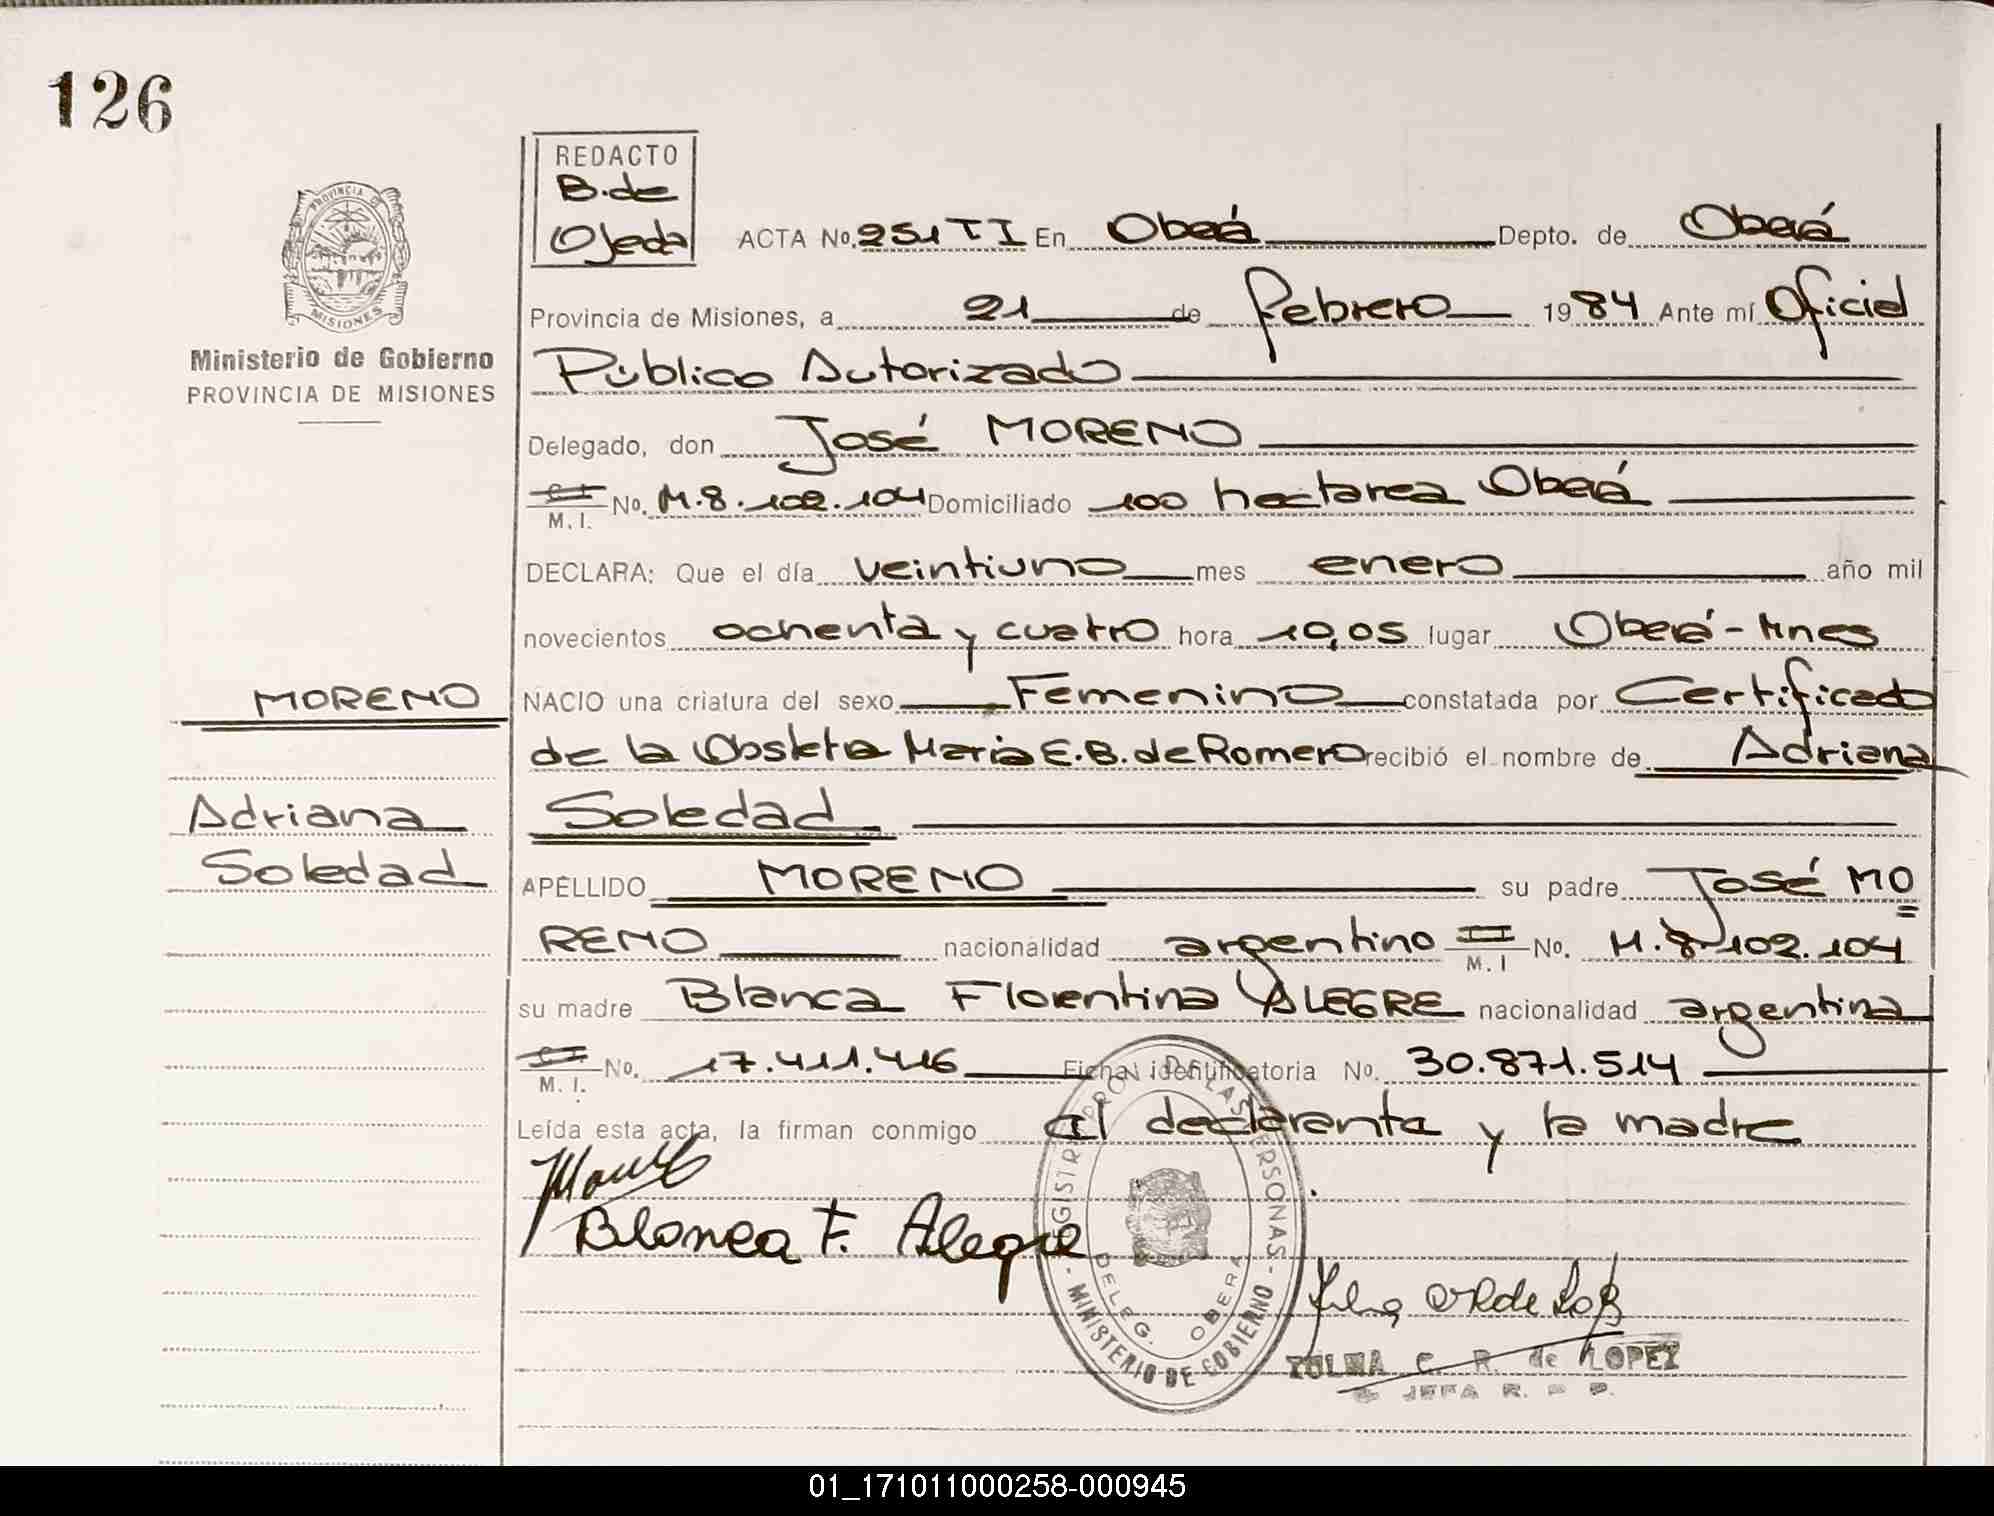 126
REDACTO
B. de
Ojeda
PROVINCIA DE
MISIONES
Ministerio de Gobierno
PROVINCIA DE MISIONES
ACTA No. 251 TI En Oberá Depto. de Oberá
Provincia de Misiones, a 21 de febrero 1984 Ante mí Oficial
Público Autorizado
Delegado, don José MORENO
C.I. M.I. No. M.8.102.104 Domiciliado 100 hectarea Oberá
DECLARA: Que el día veintiuno mes enero año mil
novecientos ochenta y cuatro hora 10,05 lugar Oberá-Mnes
MORENO
NACIO una criatura del sexo Femenino constatada por Certificado
de la Obstetra Maria E.B. de Romero recibió el nombre de Adriana
Adriana
Soledad
Soledad
APELLIDO MORENO su padre José MO
RENO nacionalidad argentino M.I No. M.8.102.104
su madre Blanca Florentina ALEGRE nacionalidad argentina
C.I. M.I. No. 17.411.416 Ficha identificatoria No. 30.871.514
Leída esta acta, la firman conmigo el declarante y la madre
Blanca F. Alegre
REGISTRO PROV. DE LAS PERSONAS
DELEG. OBERA
- MINISTERIO DE GOBIERNO -
ZULMA C. R. de LOPEZ
JEFA R. P. P.
01_171011000258-000945